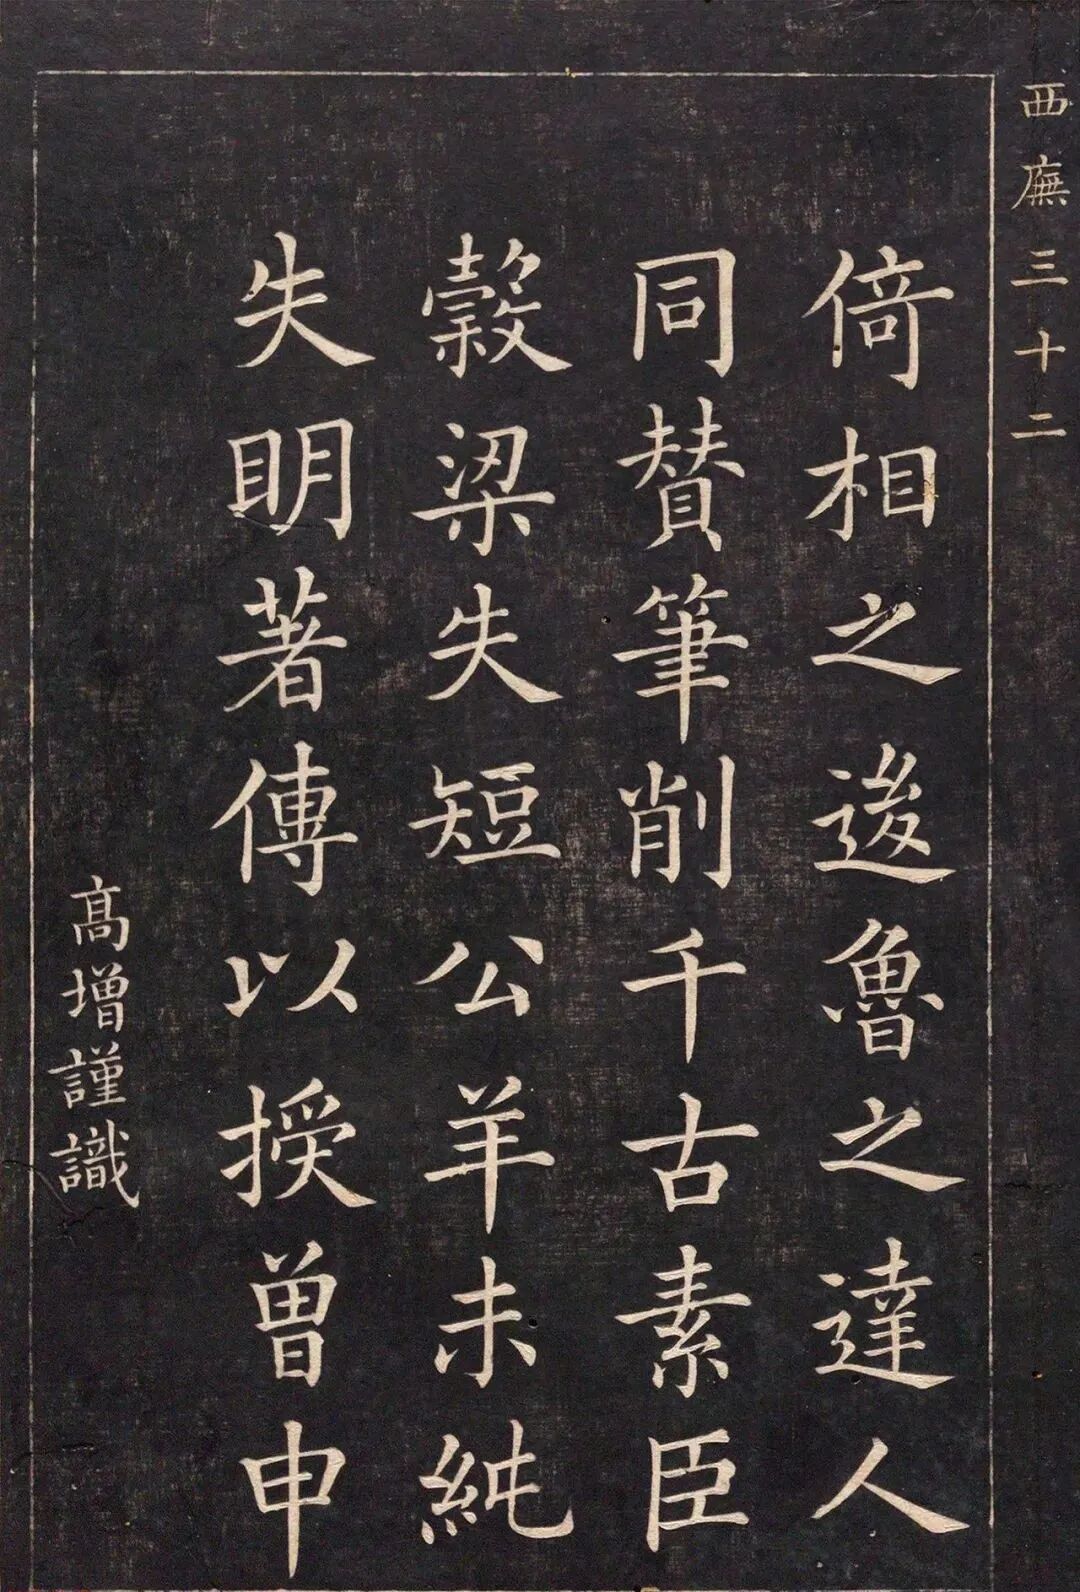 西廡三十二
倚相之後魯之達人
同贊筆削千古素臣
糓梁失短公羊未純
失明著傳以授曾申
高增謹識